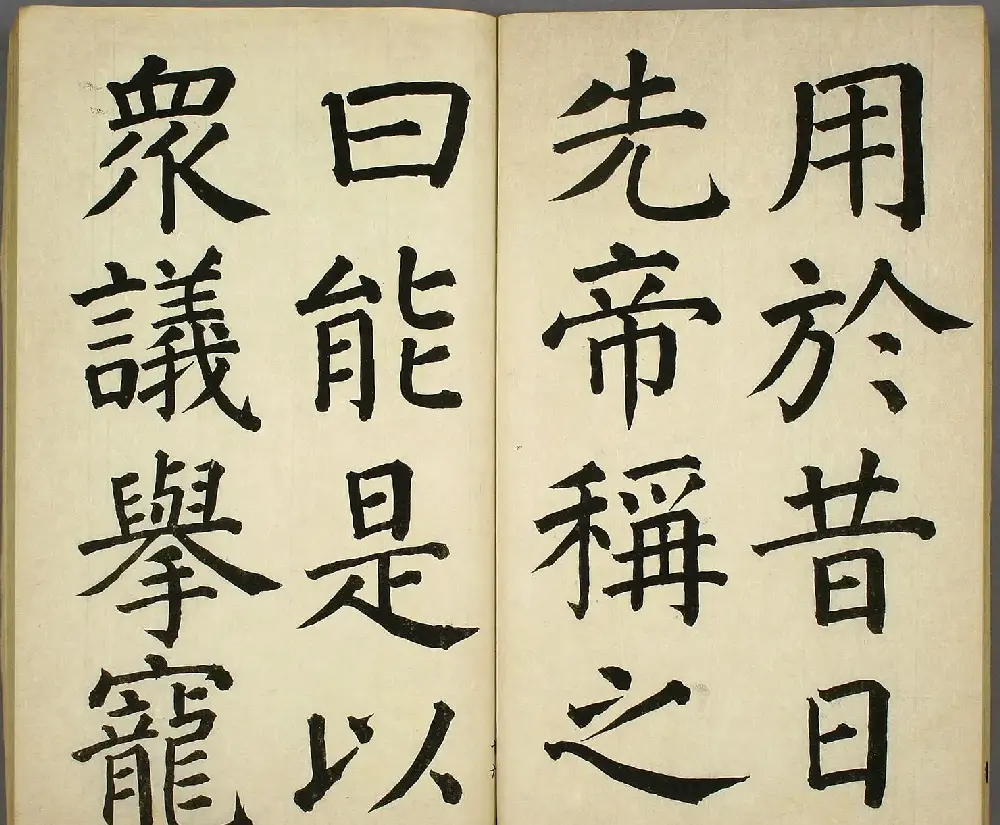 用於昔日
先帝稱之
曰能是以
衆議舉寵